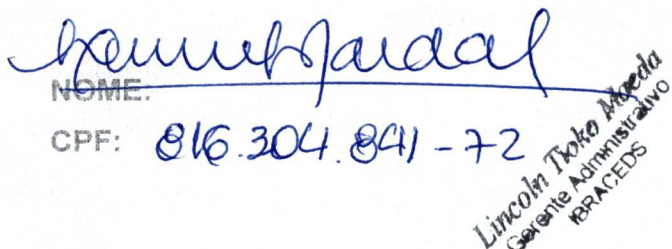 NOME:
CPF: 816.304.841-72
Lincoln Tioko Maeda
Gerente Administrativo
IBRACEDS